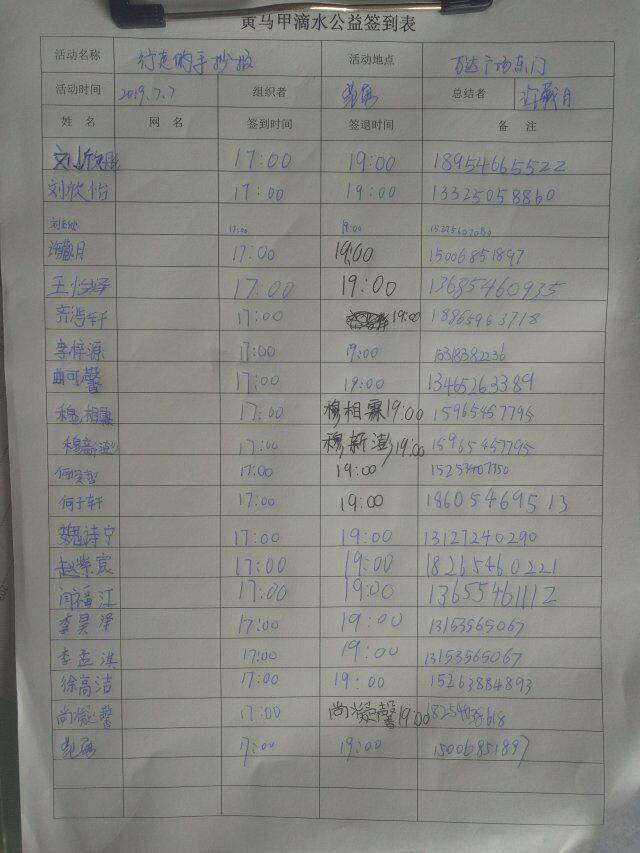 黄马甲滴水公益签到表
活动名称 行走的手抄报 活动地点 万达广场东门
活动时间 2019.7.7 组织者 总结者 许馨月
姓 名 网 名 签到时间 签退时间 备 注
17:00 19:00 18954665522
刘欣怡 17:00 19:00 13325058860
17:00 19:00
许馨月 17:00 19:00 15006851897
王怡泽 17:00 19:00 13685460935
齐浩轩 17:00 19:00 18865963718
李梓源 17:00 19:00 15318382236
曲可馨 17:00 19:00 13465263389
穆相霖 17:00 穆相霖 19:00 15965457795
穆新澎 17:00 穆新澎 19:00 15965457795
17:00 19:00
何子轩 17:00 19:00 18605469513
魏诗宁 17:00 19:00 13127240290
赵紫宸 17:00 19:00 18265460221
闫福江 17:00 19:00 13655461112
李昊泽 17:00 19:00 13153565067
李孟淇 17:00 19:00 13153565067
徐高洁 17:00 19:00 15263884893
尚凝馨 17:00 尚凝馨 19:00
17:00 19:00 15006851897